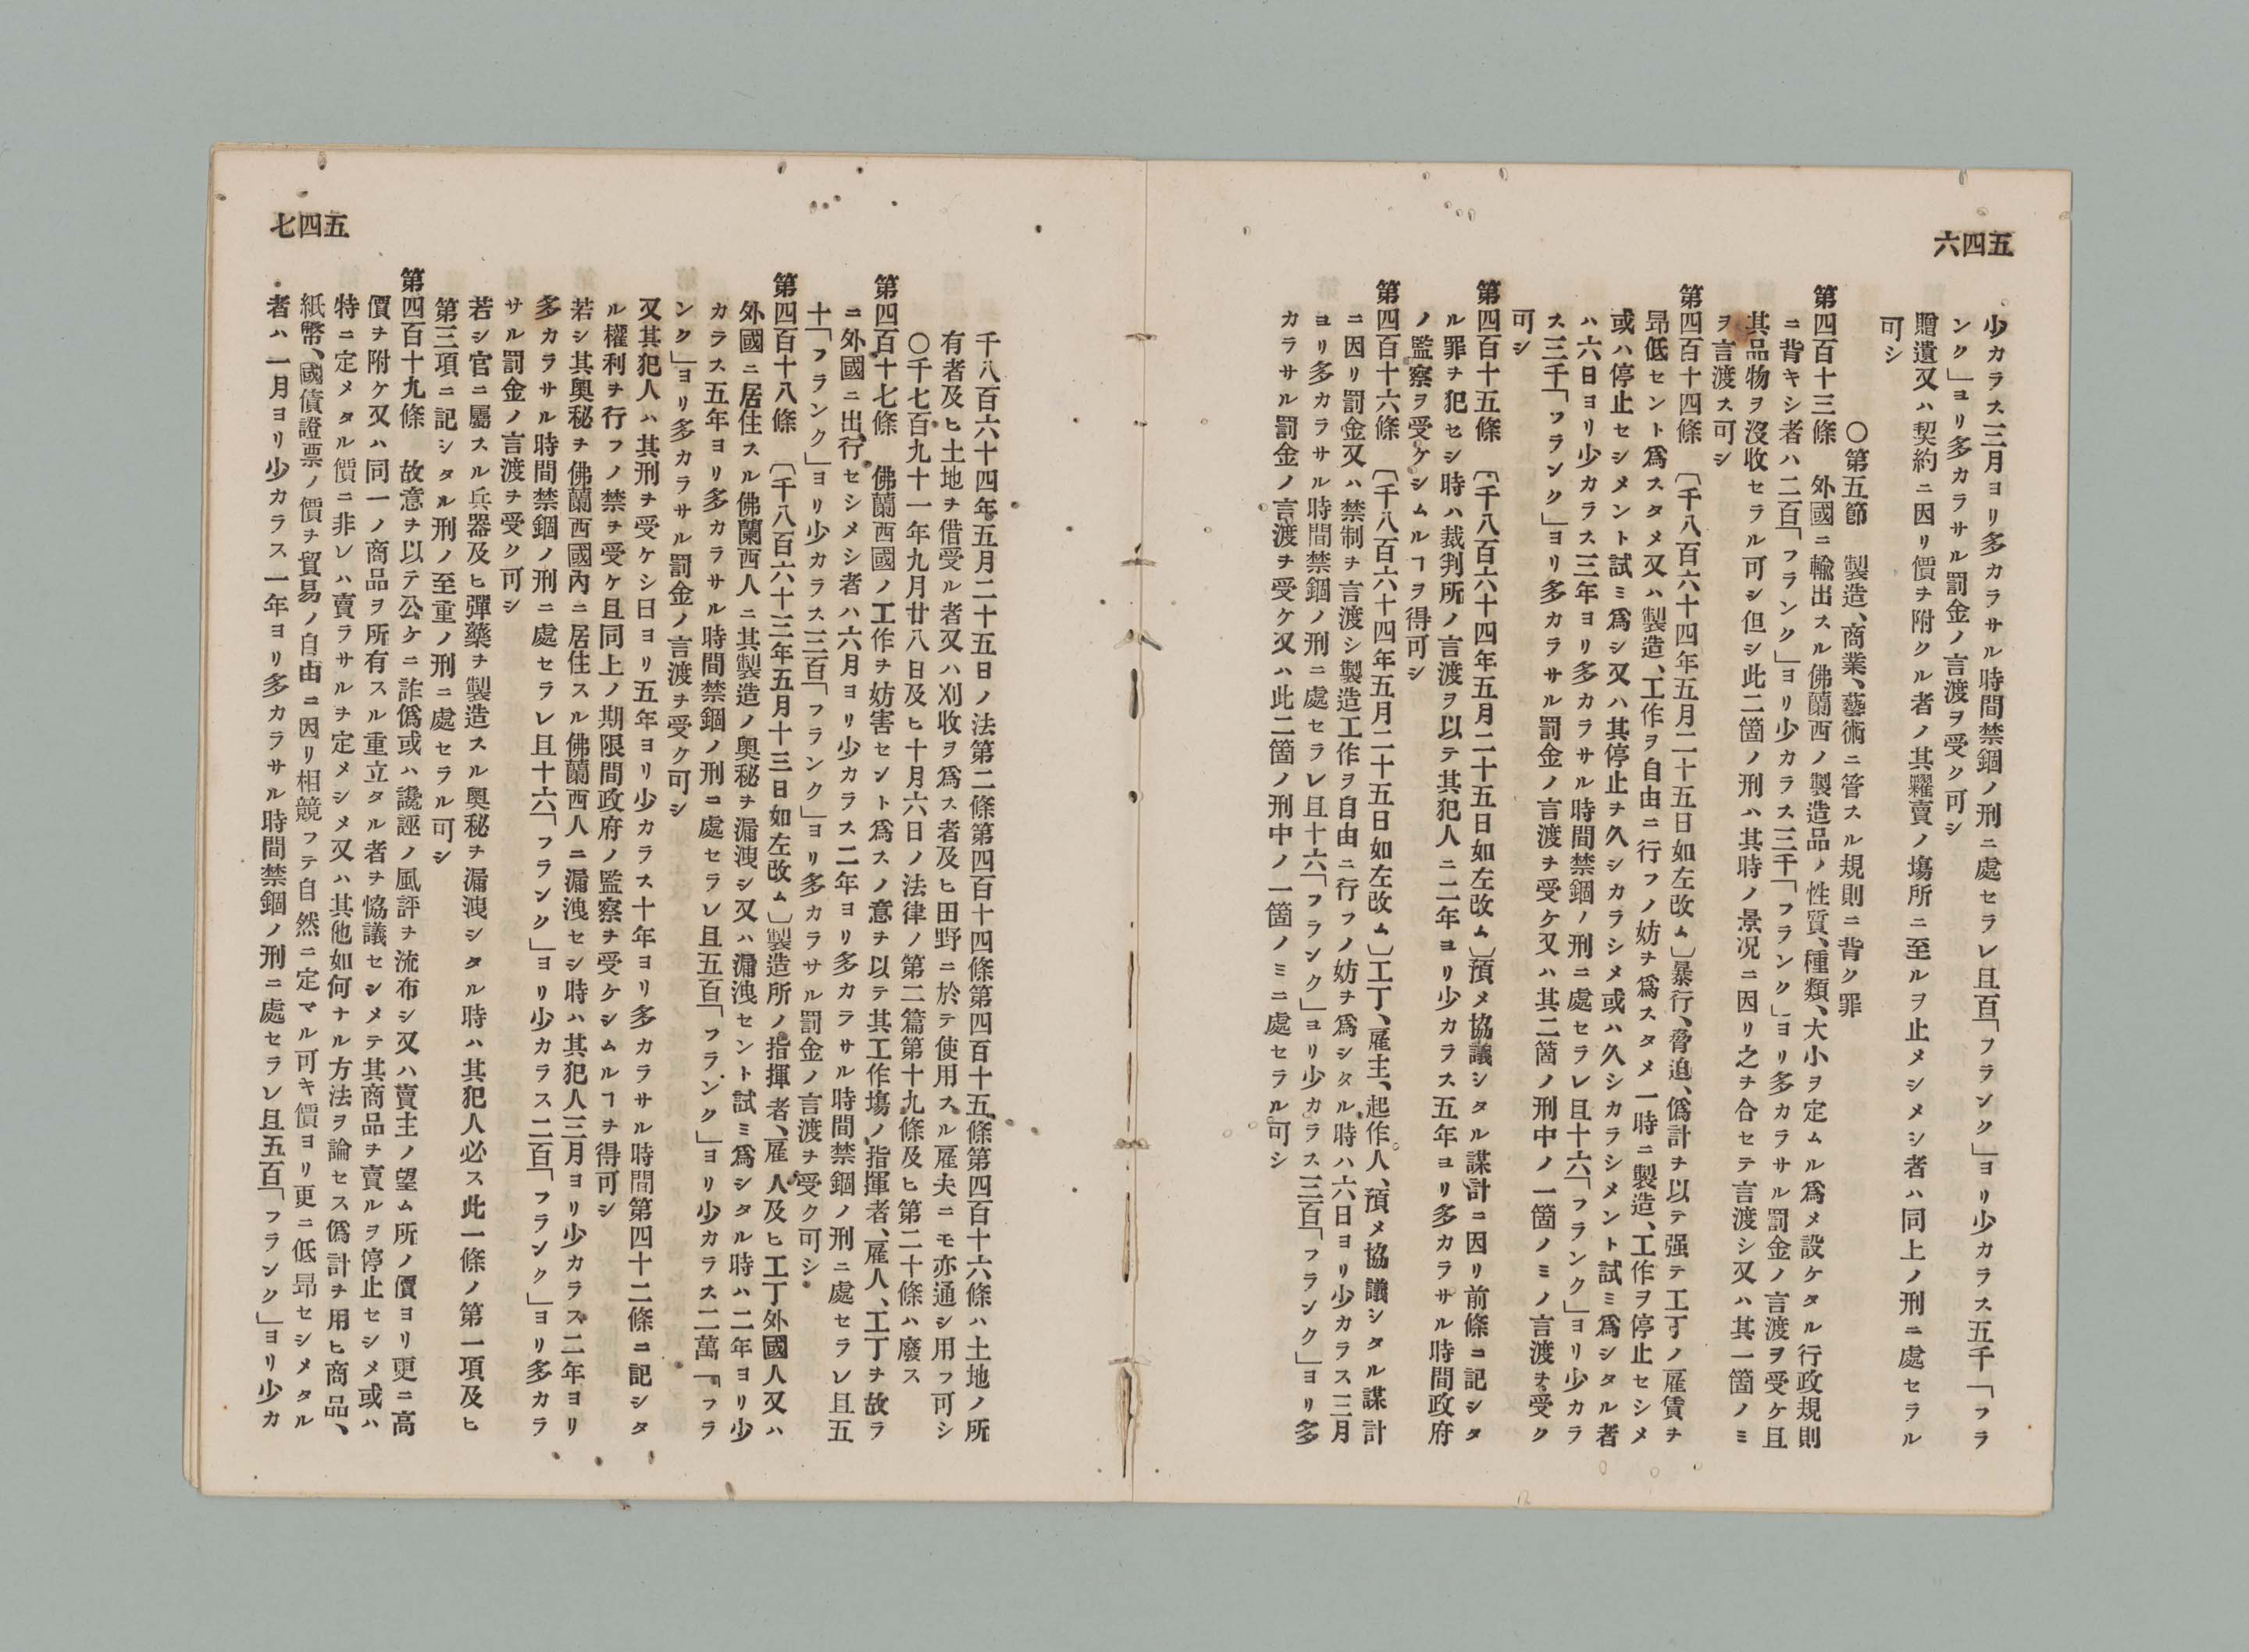 六四五
少カラス三月ヨリ多カラサル時間禁錮ノ刑ニ處セラレ且百「フランク」ヨリ少カラス五千「フラ
ンク」ヨリ多カラサル罰金ノ言渡ヲ受ク可シ
贈遺又ハ契約ニ因リ價ヲ附クル者ノ其糶賣ノ塲所ニ至ルヲ止メシメシ者ハ同上ノ刑ニ處セラル
可シ
〇第五節 製造、商業、藝術ニ管スル規則ニ背ク罪
第四百十三條 外國ニ輸出スル佛蘭西ノ製造品ノ性質、種類、大小ヲ定ムル爲メ設ケタル行政規則
ニ背キシ者ハ二百「フランク」ヨリ少カラス三千「フランク」ヨリ多カラサル罰金ノ言渡ヲ受ケ且
其品物ヲ沒收セラル可シ但シ此二箇ノ刑ハ其時ノ景况ニ因リ之ヲ合セテ言渡シ又ハ其一箇ノミ
ヲ言渡ス可シ
第四百十四條 〔千八百六十四年五月二十五日如左改ム〕暴行、脅迫、僞計ヲ以テ强テ工丁ノ雇賃ヲ
昻低セント爲スタメ又ハ製造、工作ヲ自由ニ行フノ妨ヲ爲スタメ一時ニ製造、工作ヲ停止セシメ
或ハ停止セシメント試ミ爲シ又ハ其停止ヲ久シカラシメ或ハ久シカラシメント試ミ爲シタル者
ハ六日ヨリ少カラス三年ヨリ多カラサル時間禁錮ノ刑ニ處セラレ且十六「フランク」ヨリ少カラ
ス三千「フランク」ヨリ多カラサル罰金ノ言渡ヲ受ケ又ハ其二箇ノ刑中ノ一箇ノミノ言渡ヲ受ク
可シ
第四百十五條 〔千八百六十四年五月二十五日如左改ム〕預メ協議シタル謀計ニ因リ前條ニ記シタ
ル罪ヲ犯セシ時ハ裁判所ノ言渡ヲ以テ其犯人ニ二年ヨリ少カラス五年ヨリ多カラサル時間政府
ノ監察ヲ受ケシムルヿヲ得可シ
第四百十六條 〔千八百六十四年五月二十五日如左改ム〕工丁、雇主、起作人、預メ協議シタル謀計
ニ因リ罰金又ハ禁制ヲ言渡シ製造工作ヲ自由ニ行フノ妨ヲ爲シタル時ハ六日ヨリ少カラス三月
ヨリ多カラサル時間禁錮ノ刑ニ處セラレ且十六「フランク」ヨリ少カラス三百「フランク」ヨリ多
カラサル罰金ノ言渡ヲ受ケ又ハ此二箇ノ刑中ノ一箇ノミニ處セラル可シ
七四五
千八百六十四年五月二十五日ノ法第二條第四百十四條第四百十五條第四百十六條ハ土地ノ所
有者及ヒ土地ヲ借受ル者又ハ刈收ヲ爲ス者及ヒ田野ニ於テ使用スル雇夫ニモ亦通シ用フ可シ
〇千七百九十一年九月廿八日及ヒ十月六日ノ法律ノ第二篇第十九條及ヒ第二十條ハ廢ス
第四百十七條 佛蘭西國ノ工作ヲ妨害セント爲スノ意ヲ以テ其工作塲ノ指揮者、雇人、工丁ヲ故ラ
ニ外國ニ出行セシメシ者ハ六月ヨリ少カラス二年ヨリ多カラサル時間禁錮ノ刑ニ處セラレ且五
十「フランク」ヨリ少カラス三百「フランク」ヨリ多カラサル罰金ノ言渡ヲ受ク可シ
第四百十八條 〔千八百六十三年五月十三日如左改ム〕製造所ノ指揮者、雇人及ヒ工丁外國人又ハ
外國ニ居住スル佛蘭西人ニ其製造ノ奧秘ヲ漏洩シ又ハ漏洩セント試ミ爲シタル時ハ二年ヨリ少
カラス五年ヨリ多カラサル時間禁錮ノ刑ニ處セラレ且五百「フランク」ヨリ少カラス二萬「フラ
ンク」ヨリ多カラサル罰金ノ言渡ヲ受ク可シ
又其犯人ハ其刑ヲ受ケシ日ヨリ五年ヨリ少カラス十年ヨリ多カラサル時間第四十二條ニ記シタ
ル權利ヲ行フノ禁ヲ受ケ且同上ノ期限間政府ノ監察ヲ受ケシムルヿヲ得可シ
若シ其奧秘ヲ佛蘭西國內ニ居住スル佛蘭西人ニ漏洩セシ時ハ其犯人三月ヨリ少カラス二年ヨリ
多カラサル時間禁錮ノ刑ニ處セラレ且十六「フランク」ヨリ少カラス二百「フランク」ヨリ多カラ
サル罰金ノ言渡ヲ受ク可シ
若シ官ニ屬スル兵器及ヒ彈藥ヲ製造スル奧秘ヲ漏洩シタル時ハ其犯人必ス此一條ノ第一項及ヒ
第三項ニ記シタル刑ノ至重ノ刑ニ處セラル可シ
第四百十九條 故意ヲ以テ公ケニ詐僞或ハ讒誣ノ風評ヲ流布シ又ハ賣主ノ望ム所ノ價ヨリ更ニ高
價ヲ附ケ又ハ同一ノ商品ヲ所有スル重立タル者ヲ恊議セシメテ其商品ヲ賣ルヲ停止セシメ或ハ
特ニ定メタル價ニ非レハ賣ラサルヲ定メシメ又ハ其他如何ナル方法ヲ論セス僞計ヲ用ヒ商品、
紙幣、國債證票ノ價ヲ貿易ノ自由ニ因リ相競フテ自然ニ定マル可キ價ヨリ更ニ低昻セシメタル
者ハ一月ヨリ少カラス一年ヨリ多カラサル時間禁錮ノ刑ニ處セラレ且五百「フランク」ヨリ少カ